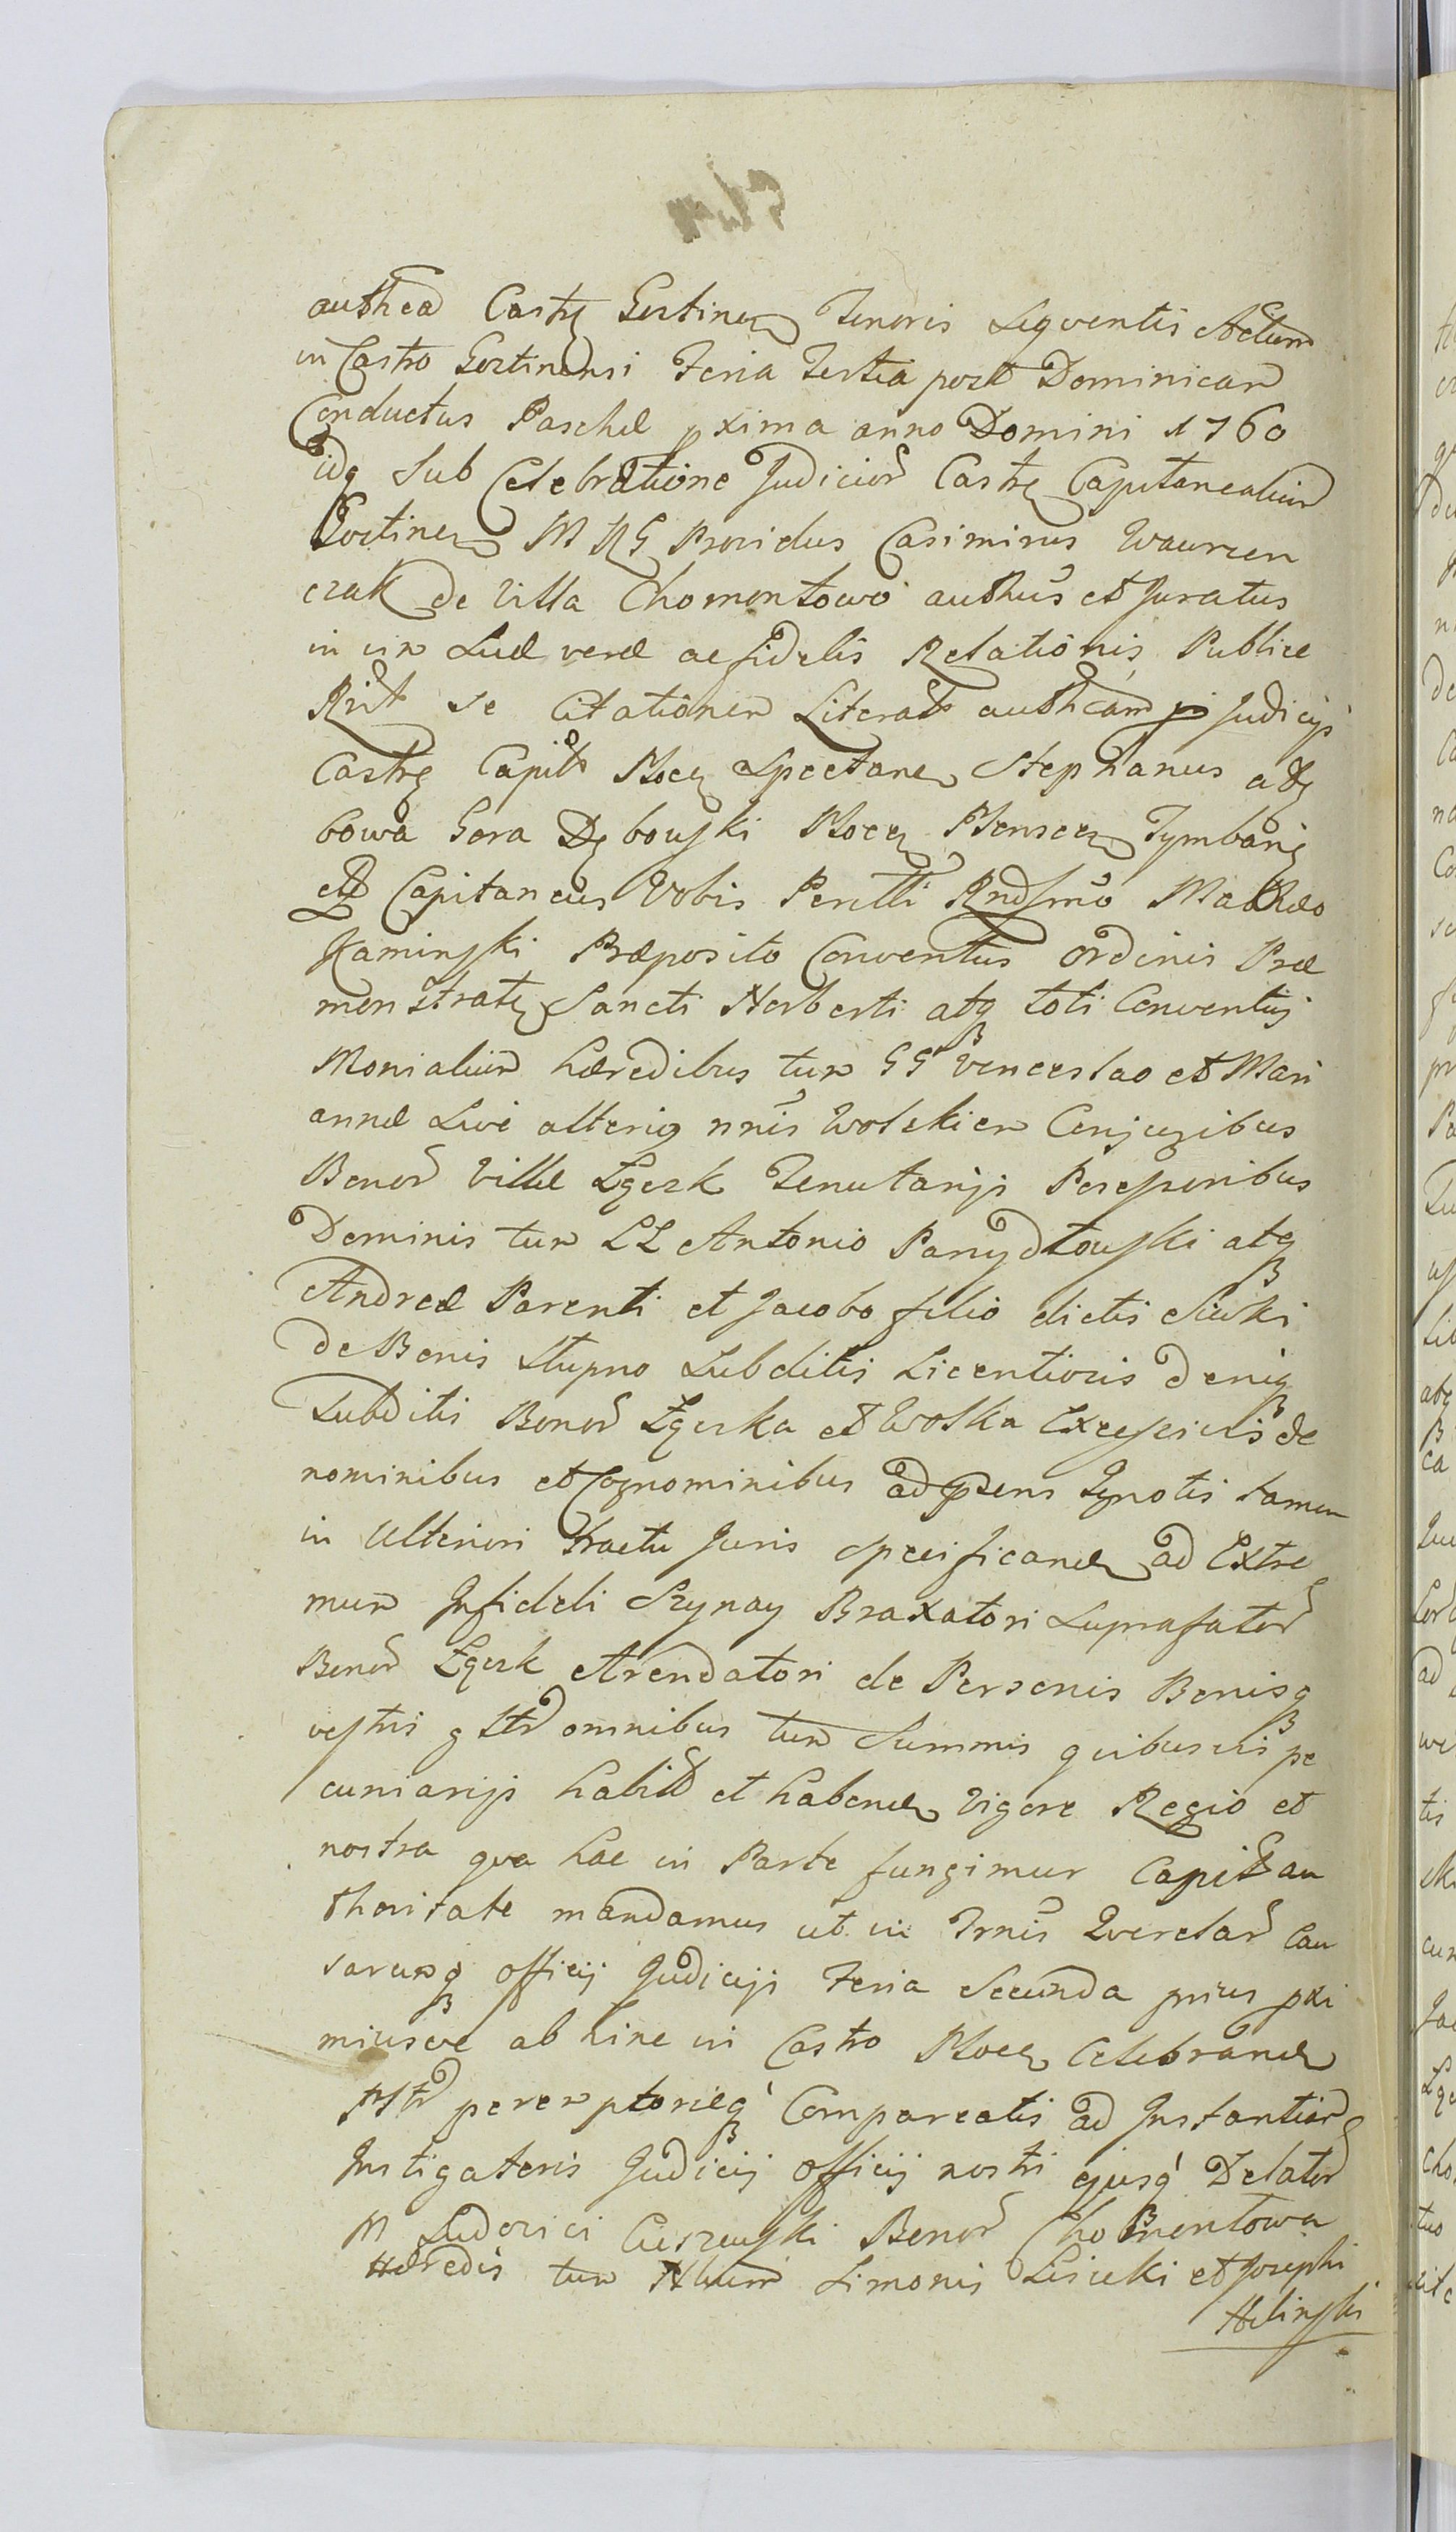 authca Castr Gostinen Tenoris Seqventis Actum
in Castro Gostinensi Feria Tertia post Dominicam
Conductus Paschæ pxima anno Domini 1760
idq sub Celebratione Judicior Castr Capitanealium
Gostinen MRG Providus Casimirus Wawrzen
czak de Villa Chomentowo authus et Juratus
in vim Suæ veræ ac fidelis Relationis Publice
Rlt se Citationem Literat authcam pi Judicij
Castr Capit Plocen Spectanem Stephanus a Dę
bowa Gora Dębowski Plocen Plonscen Tymbarq
etc Capitaneus Vobis Perilli Rndsmo Mathæo
Kaminski Præposito Conventus Ordinis Præ
monstraten Sancti Norberti atq toti Conventuj
Monialium hæredibus tum GG Venceslao et Mari
annæ Sivi alteriq nnis Wolskiem Conjugibus
Bonor Villæ Łgczk Tenutarijs Possessoribus
Dominis tum LL Antonio Paniydłowski atq
Andreæ Parenti et Jacobo filio dictis Siuki
de Bonis Stupno Subditis Licentiosis deniq
Subditis Bonor Łęczka et Wolka Excessivis de
nominibus et Cognominibus ad psens Ignotis tamen
in Ulteriori tractu Juris specificand ad Extre
mum Infideli Szynay Braxatori Suprafator
Bonor Łgczk Arendatori de Personis Bonisq
vestris gltr omnibus tum Summis quibusvis pe
cuniarijs habit et habend Vigore Regio et
nostra qva hac in Parte fungimur Capit au
thoritate mandamus ut in Trnis Qverelar Cau
sarumq Officij Judicijs Feria Secunda prius pxi
miusve ab hinc in Castro Plocen Celebrand
Pltr peremptorieq Compareatis ad Instantiam
Instigatoris Judicij Officij nostri ejusq Delator
M Ludovici Cieszewski Bonor Chomentowa
Hæredis tum Nlium Simonis Lisicki et Josephi
Zielinski